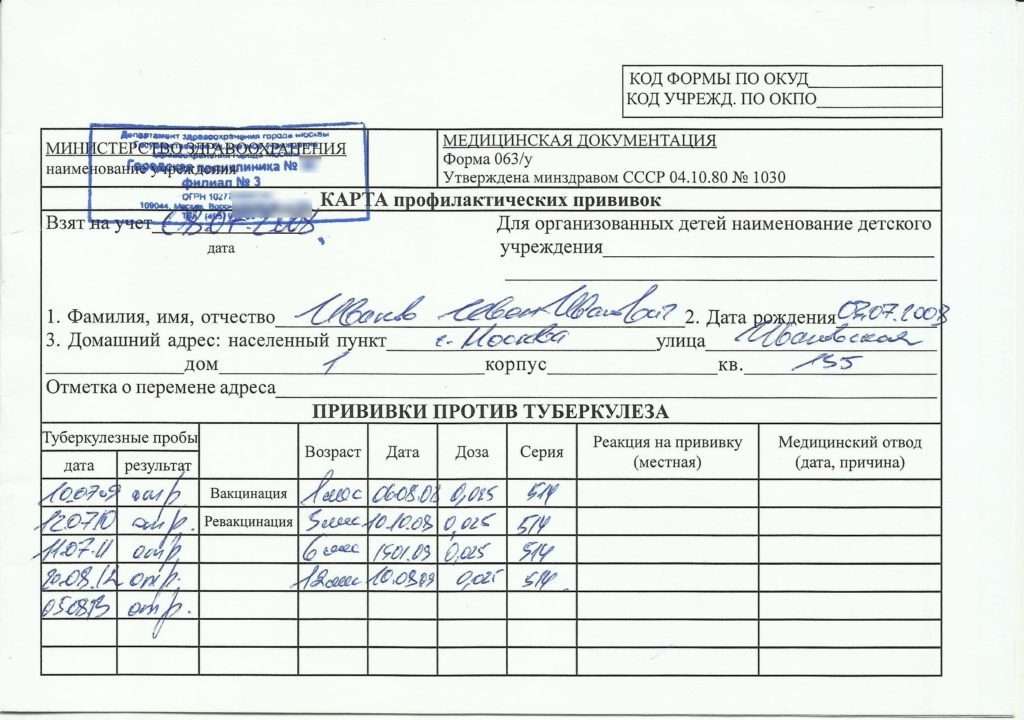 КОД ФОРМЫ ПО ОКУД
КОД УЧРЕЖД. ПО ОКПО
Департамент здравоохранения города Москвы
МИНИСТЕРСТВО ЗДРАВООХРАНЕНИЯ
наименование учреждения
Городская поликлиника №
филиал № 3
ОГРН 1027
109044, Москва, Воро
МЕДИЦИНСКАЯ ДОКУМЕНТАЦИЯ
Форма 063/у
Утверждена минздравом СССР 04.10.80 № 1030
КАРТА профилактических прививок
Взят на учет
дата
Для организованных детей наименование детского
учреждения
1. Фамилия, имя, отчество Иванов Иван Иванович 2. Дата рождения 07.2008
3. Домашний адрес: населенный пункт г. Москва улица Ивановская
дом 1 корпус кв. 155
Отметка о перемене адреса
ПРИВИВКИ ПРОТИВ ТУБЕРКУЛЕЗА
Туберкулезные пробы Возраст Дата Доза Серия Реакция на прививку (местная) Медицинский отвод (дата, причина)
дата результат
10.07.09 отр. Вакцинация 1 мес 06.08.08 0,025 514
12.07.10 отр. Ревакцинация 3 мес 10.10.08 0,025 514
11.07.11 отр. 6 мес 15.01.09 0,025 514
20.08.12 отр. 12 мес 0,025 514
05.08.13 отр.